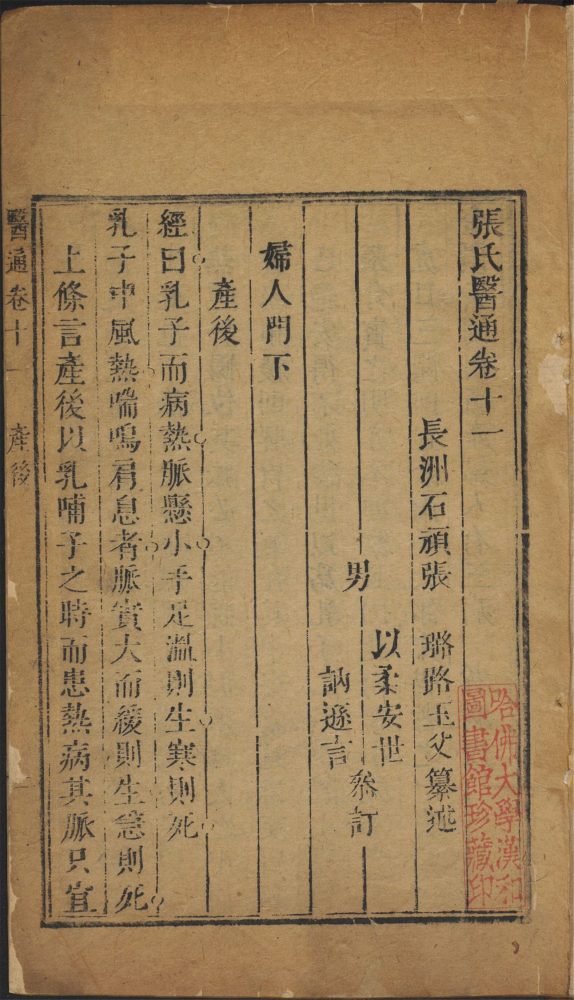 張氏醫通卷十一
長洲石頑張 璐路玉父纂述
以柔安世
男 參訂
訥遜言
婦人門下
產後
經曰乳子而病熱脈懸小手足溫則生寒則死
乳子中風熱喘鳴肩息者脈實大而緩則生急則死
上條言產後以乳哺子之時而患熱病其脈只宜
醫通卷十一 產後
哈佛大學漢和
圖書館珍藏印